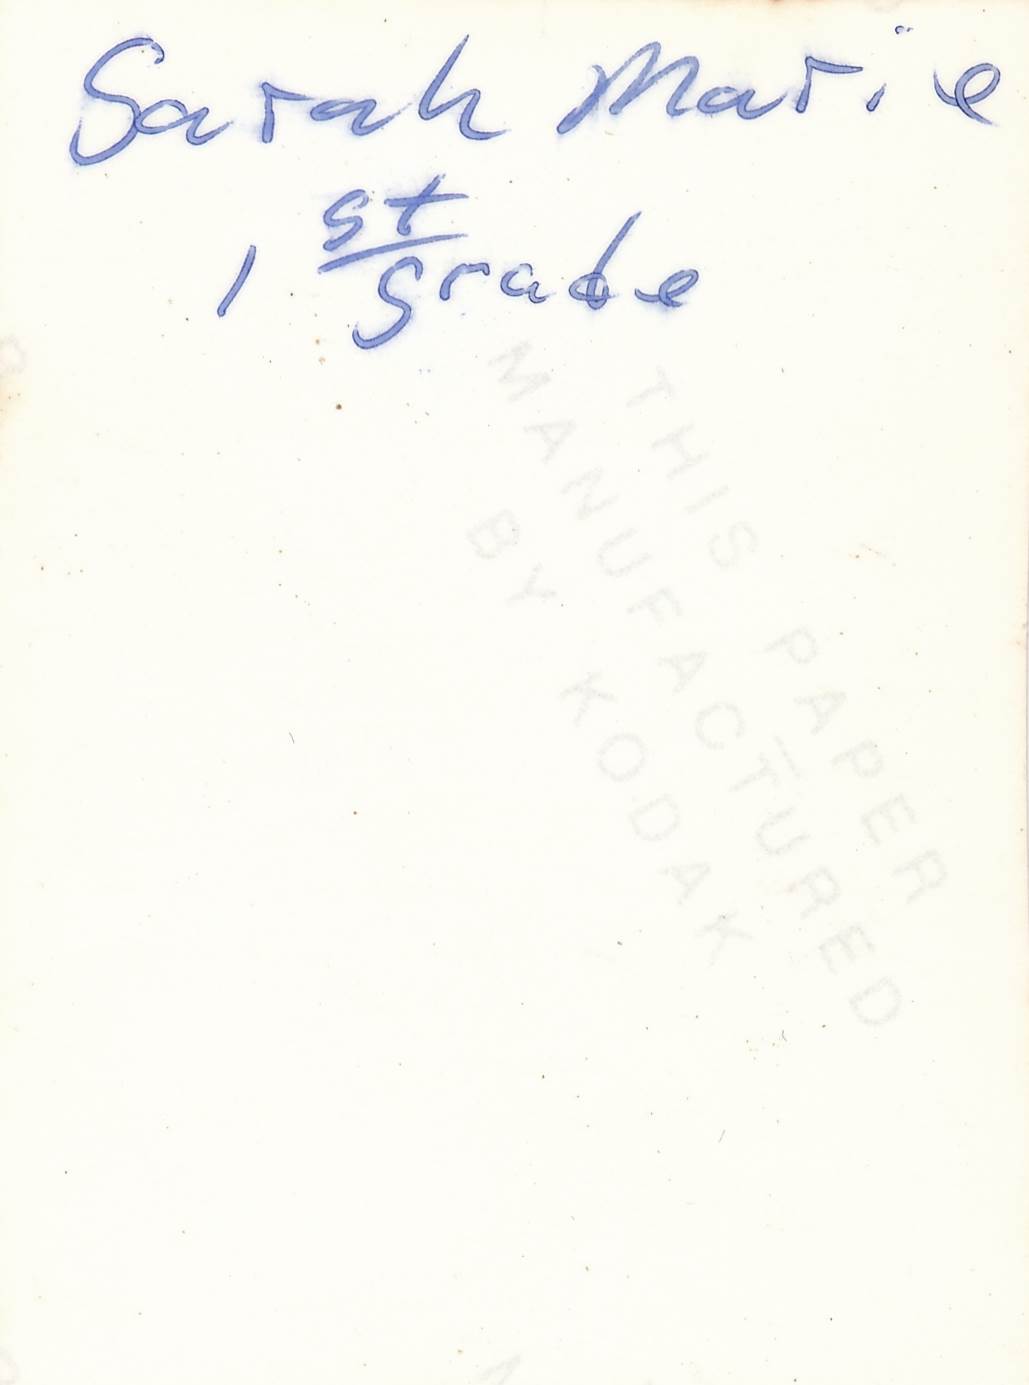 Sarah Marie
1st grade
THIS PAPER
MANUFACTURED
BY KODAK